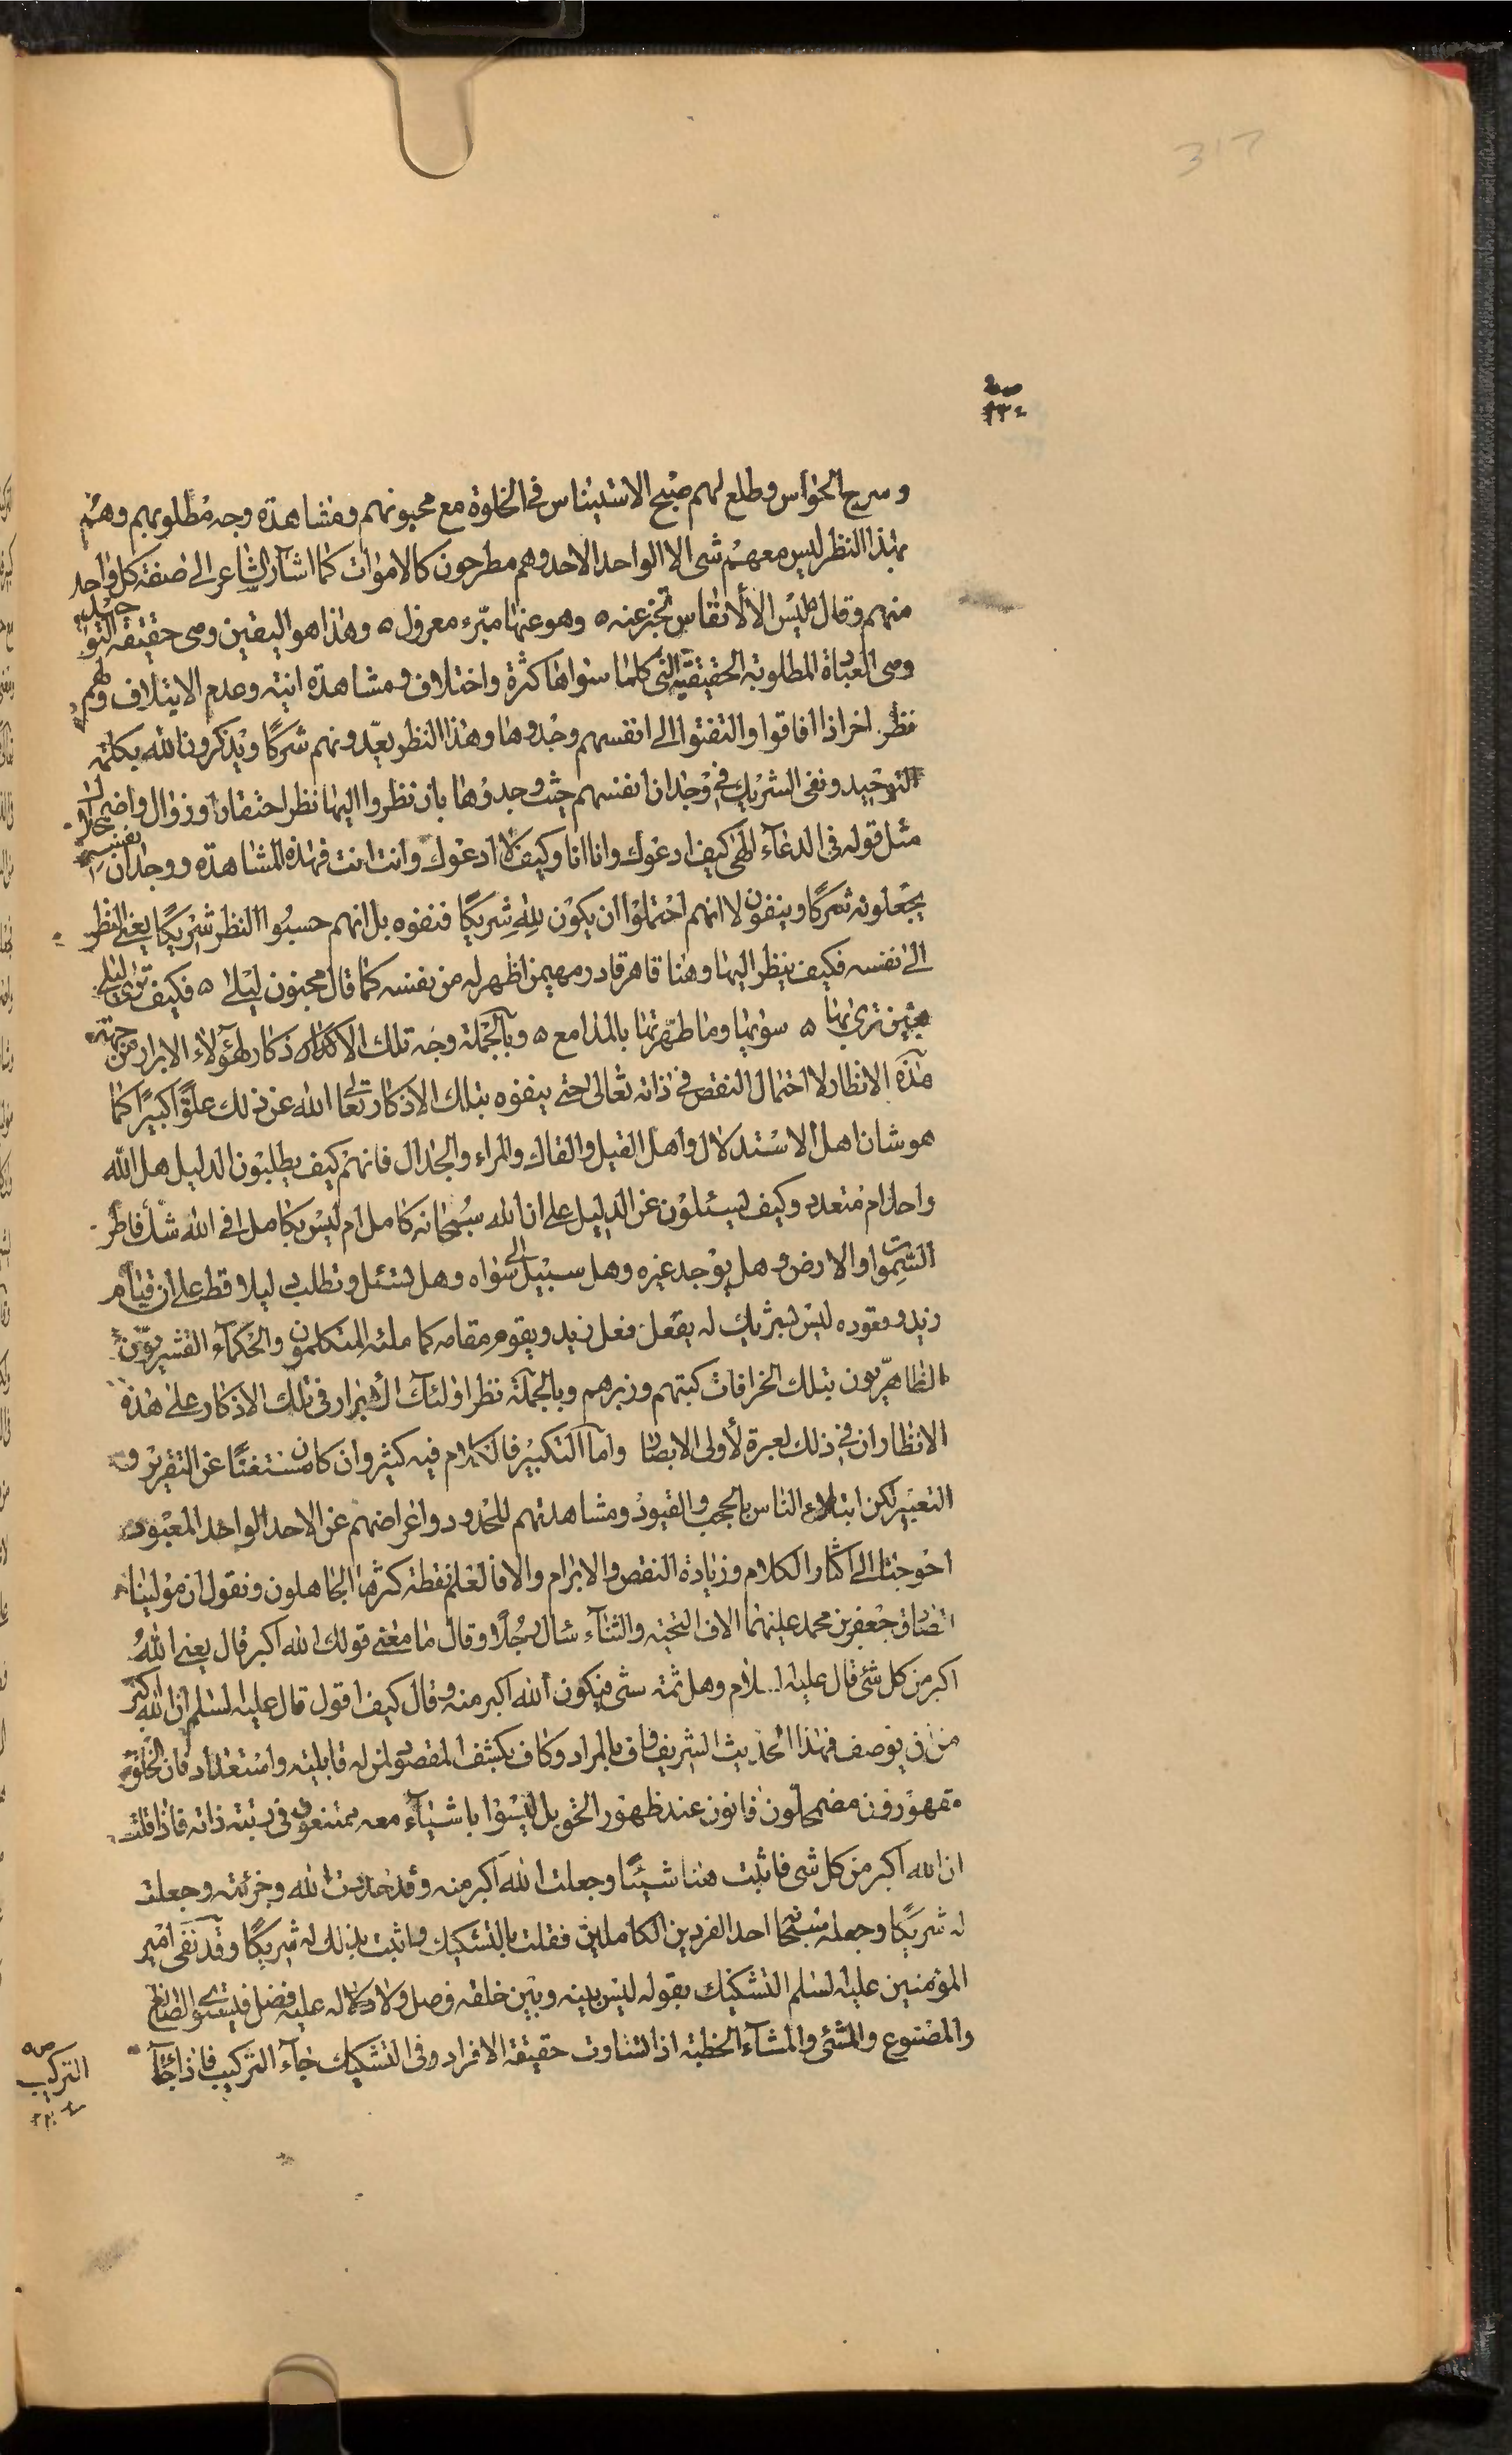 317
وسرج الحواس وطلع لهم صبح الاستيناس فی الخلوة مع محبوبهم ومشاهدة وجه مطلوبهم وهم
بهذا النظر ليس معهم شی الا الواحد الاحد وهم مطرحون كالاموات كما اشار الشاعر الی صفة كل واحد
منهم وقال ليس الا الانفاس تخبر عنه ٥ وهو عنها مبرء معزول ٥ وهذا هو اليقين وهی حقيقة التوحيد
وهی العبادة المطلوبة الحقيقية التی كلما سواها كثرة واختلاف ومشاهدة انية وعدم الايتلاف ولهم
نظر اخر اذا افاقوا والتفتوا الی انفسهم وجدوها وهذا النظر يعدونهم شركا ويذكرون الله بكلمة
التوحيد ونفی الشريك فی وجدان انفسهم حيث وجدوها بان نظروا اليها نظر احتقار وزوال واضمحلال
مثل قوله فی الدعاء الهی كيف ادعوك وانا انا وكيف لا ادعوك وانت انت فهذه المشاهدة ووجدان انفسهم
يجعلونه شركا وينفون لا انهم احتملوا ان يكون لله شريكا فنفوه بل انهم حسبوا النظر شريكا يعنی النظر
الی نفسه فكيف ينظر اليها وهنا قاهر قادر ومهيمن اظهر له من نفسه كما قال مجنون ليلی ٥ فكيف تری ليلی
بعين تری بها ٥ سويها وما طهرتها بالمدامع ٥ وبالجملة وجه تلك الاذكار لهؤلاء الابرار من جهة
هذه الانظار لا احتمال النقص فی ذاته تعالی حتی ينفوه بتلك الاذكار تعالی الله عن ذلك علوا كبيرا كما
هو شان اهل الاستدلال واهل القيل والقال والمراء والجدال فانهم كيف يطلبون الدليل هل الله
واحد ام متعدد وكيف يسئلون عن الدليل علی ان الله سبحانه كامل ام ليس بكامل افی الله شك فاطر
السموات والارض وهل يوجد غيره وهل سبيل الی سواه وهل تسئل وتطلب دليلا قط علی ان قيام
زيد وقعوده ليس بشريك له يفعل فعل زيد ويقوم مقامه كما ملئه المتكلمون والحكماء القشريون
الظاهريون بتلك الخرافات كتبهم وزبرهم وبالجملة نظر اولئك الابرار فی تلك الاذكار علی هذه
الانظار ان فی ذلك لعبرة لأولی الابصار واما التكبير فالكلام فيه كثير وان كان مستغنيا عن التقرير و
التعبير لكن ابتلاء الناس بالحجب والقيود ومشاهدتهم للحدود واعراضهم عن الاحد الواحد المعبود
احوجنا الی اكثار الكلام وزيادة النقض والابرام والا فالعلم نقطة كثرها الجاهلون ونقول ان مولينا
الصادق جعفر بن محمد عليهما الاف التحية والثناء سال رجلا وقال ما معنی قولك الله اكبر قال يعنی الله
اكبر من كل شئ قال عليه السلام وهل ثمة شی فيكون الله اكبر منه وقال كيف اقول قال عليه السلم ان الله اكبر
من ان يوصف فهذا الحديث الشريف واف بالمراد وكاف بكشف المقصود لمن له قابلية واستعداد فان الخلق
مقهورون مضمحلون فانون عند ظهور الحق بل ليسوا باشياء معه ممتنعون فی رتبة ذاته فاذا قلت
ان الله اكبر من كل شی فاثبت هنا شيئا وجعلت الله اكبر منه وقد حددت الله وجزئته وجعلت
له شريكا وجعلته سبحانه احد الفردين الكاملين فقلت بالتشكيك واثبت بذلك له شريكا وقد نفی امير
المؤمنين عليه السلم التشكيك بقوله ليس بينه وبين خلقه فصل ولا له عليه فضل فيستوی الصانع
والمصنوع والمنشئ والمنشاء الخطبة اذا تساوت حقيقة الافراد وفی التشكيك جاء التركيب فاذا جاء
التركيب